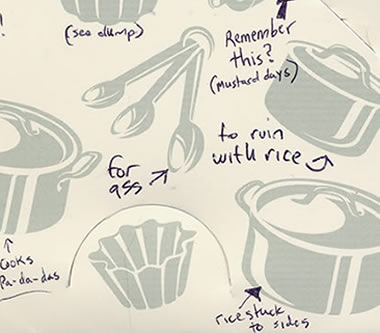 !
(see dump)
Remember
this?
(mustard days)
to ruin
with rice
for
ass
Cooks
Pa-da-das
rice stuck
to sides